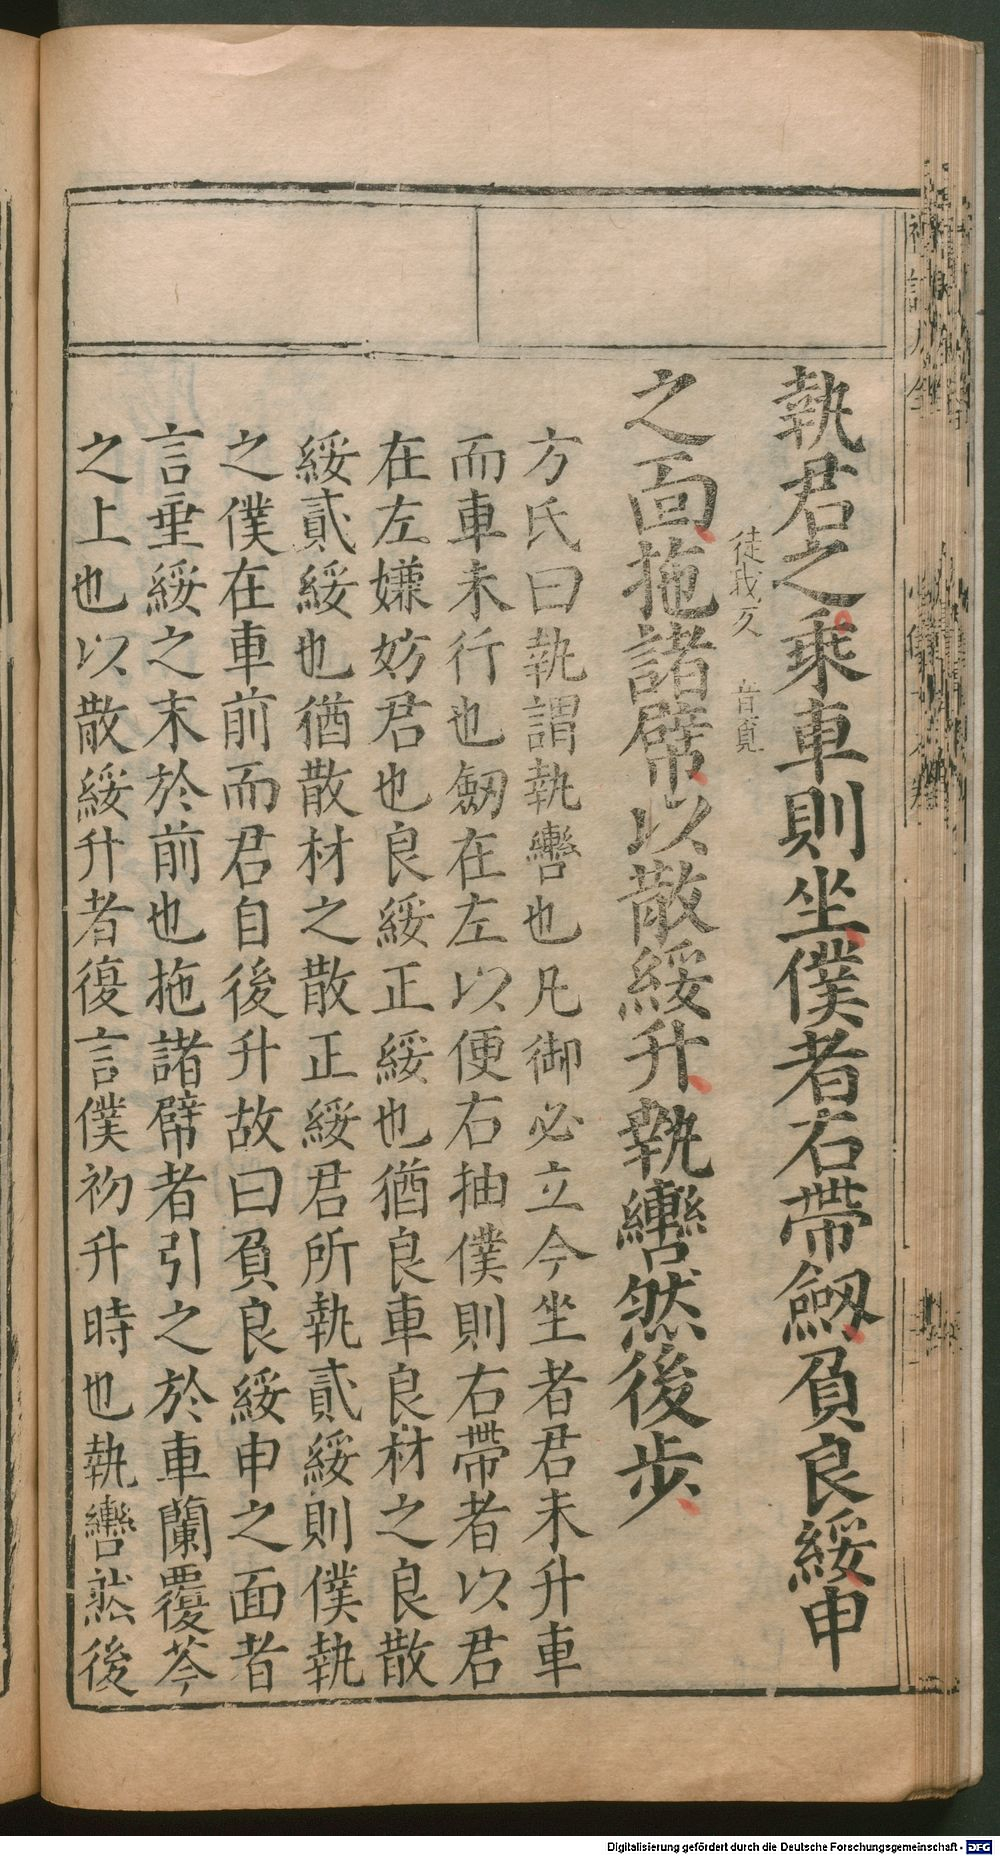 執君之乘車則坐僕者右帶劒負良綏申
之面拖諸幦以散綏升執轡然後步
徒我反 音覓
方氏曰執謂執轡也凡御必立今坐者君未升車
而車未行也劒在左以便右抽僕則右帶者以君
在左嫌妨君也良綏正綏也猶良車良材之良散
綏貳綏也猶散材之散正綏君所執貳綏則僕執
之僕在車前而君自後升故曰負良綏申之面者
言垂綏之末於前也拖諸幦者引之於車闌覆苓
之上也以散綏升者復言僕初升時也執轡然後
Digitalisierung gefördert durch die Deutsche Forschungsgemeinschaft - DFG